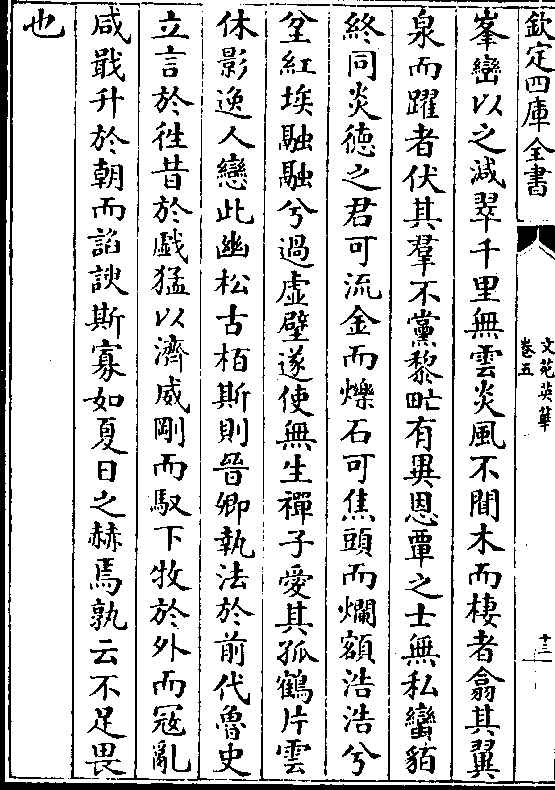 欽定四庫全書
文苑英華
卷五
十三
峯巒以之減翠千里無雲炎風不間木而棲者翕其翼
泉而躍者伏其羣不黨黎甿有異恩覃之士無私蠻貊
終同炎德之君可流金而爍石可焦頭而爛額浩浩兮
坌紅埃融融兮過虛壁遂使無生禪子愛其孤鶴片雲
休影逸人戀此幽松古栢斯則晉卿執法於前代魯史
立言於徃昔於戲猛以濟威剛而馭下牧於外而冦亂
咸戢升於朝而諂諛斯寡如夏日之赫焉孰云不足畏
也